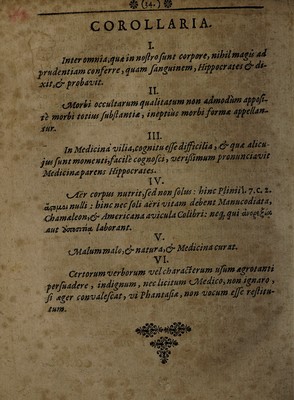 (14.)
COROLLARIA.
I.
Inter omnia, quæ in nostro sunt corpore, nihil magis ad
prudentiam conferre, quam sanguinem, Hippocrates & di-
xit, & probavit.
II.
Morbi occultarum qualitatum non admodùm apposi-
tè morbi totius substantiæ, ineptius morbi formæ appellan-
tur.
III.
In Medicina vilia, cognitu esse difficilia, & quæ alicu-
jus sunt momenti, facilè cognosci, verissimum pronunciavit
Medicinæ parens Hippocrates.
IV.
Aër corpus nutrit, sed non solus: hinc Plinii l. 7. c. 2.
nulli: hinc nec soli aëri vitam debent Manucodiata,
Chamæleon, & Americana avicula Colibri: neq; qui
aut laborant.
V.
Malum malo, & natura, & Medicina curat.
VI.
Certorum verborum vel characterum usum ægrotanti
persuadere, indignum, nec licitum Medico, non ignaro,
si æger convalescat, vi Phantasiæ, non vocum esse restitu-
tum.